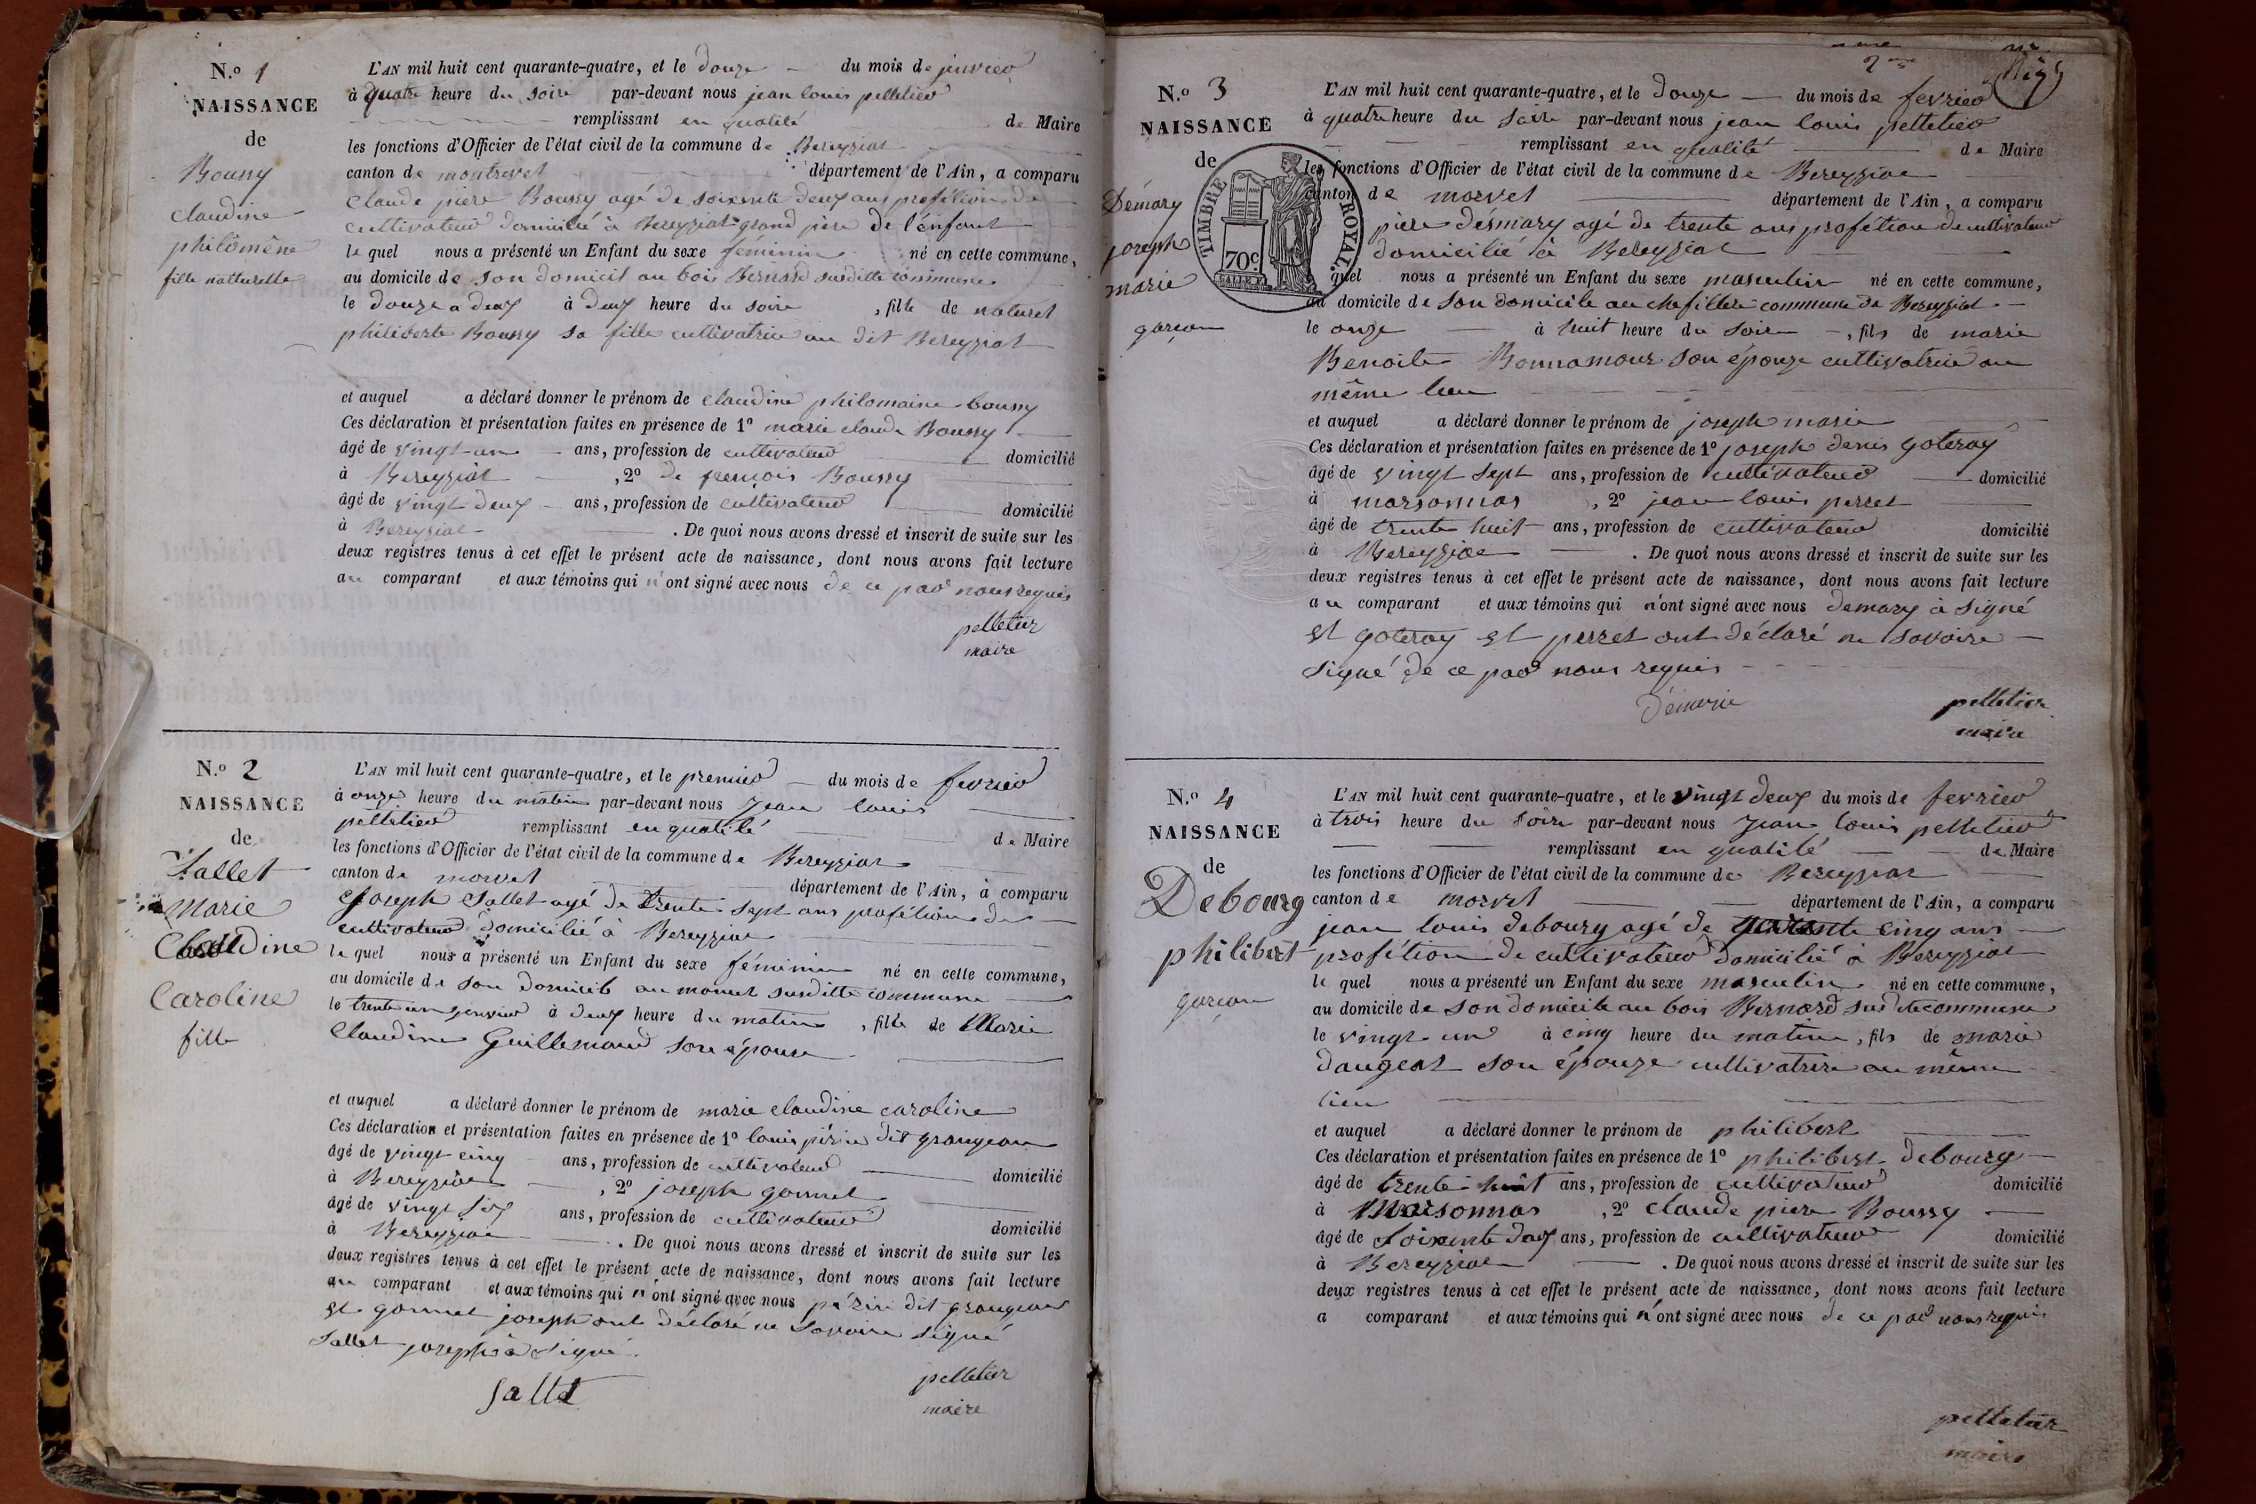 N.º 1
NAISSANCE
de
Boussy
claudine
philomène
fille natturelle
L'AN mil huit cent quarante-quatre, et le douze du mois de janvier
à quatre heure du soire par-devant nous jean louis pelletier
remplissant en qualité de Maire
les fonctions d'Officier de l'état civil de la commune de Bereyziat
canton de montrevel département de l'Ain, a comparu
claude piere Boussy agé de soixente deux ans profétion de
cultivateur domicilié à Bereyziat grand père de l'énfant
le quel nous a présenté un Enfant du sexe féminin né en cette commune,
au domicile de son domicil au bois Bernard susditte commune
le douze a deux à deux heure du soire, fille de naturel
philiberte Boussy sa fille cultivatrice au dit Bereyziat
et auquel a déclaré donner le prénom de claudine philomaine boussy
Ces déclaration et présentation faites en présence de 1º marie claude Boussy
âgé de vingt-un ans, profession de cultivateur domicilié
à Bereyziat, 2º de françois Boussy
âgé de vingt deux ans, profession de cultivateur domicilié
à Bereyziat. De quoi nous avons dressé et inscrit de suite sur les
deux registres tenus à cet effet le présent acte de naissance, dont nous avons fait lecture
au comparant et aux témoins qui n'ont signé avec nous de ce par nous requis
pelletier
maire
N.º 2
NAISSANCE
de
Sallet
Marie
Claudine
Caroline
fille
L'AN mil huit cent quarante-quatre, et le premier du mois de fevrier
à onze heure du matin par-devant nous Jean louis
pelletier remplissant en qualité de Maire
les fonctions d'Officier de l'état civil de la commune de Bereyziat
canton de morvel département de l'Ain, à comparu
Joseph Sallet agé de trente sept ans profétion de
cultivateur domicilié à Bereyziat
le quel nous a présenté un Enfant du sexe féminin né en cette commune,
au domicile de son domicile au susditte commune
le trente un janvier à deux heure du matin, fille de Marie
Claudine Guillemaud son épouse
et auquel a déclaré donner le prénom de marie claudine caroline
Ces déclaration et présentation faites en présence de 1º louis périn dit grangeon
âgé de vingt cinq ans, profession de cultivateur domicilié
à Bereyziat, 2º joseph gonnet
âgé de vingt six ans, profession de cultivateur domicilié
à Bereyziat. De quoi nous avons dressé et inscrit de suite sur les
deux registres tenus à cet effet le présent acte de naissance, dont nous avons fait lecture
au comparant et aux témoins qui n'ont signé avec nous périn dit grangeon
et gonnet joseph ont déclaré ne savoire signé
Sallet joseph à signé.
Sallet
pelletier
maire
2me
N.º 3
NAISSANCE
de
Démary
joseph
marie
garçon
TIMBRE ROYAL.
70c
L'AN mil huit cent quarante-quatre, et le douze du mois de fevrier
à quatre heure du soire par-devant nous jean louis pelletier
remplissant en qualité de Maire
les fonctions d'Officier de l'état civil de la commune de Bereyziat
canton de morvel département de l'Ain, a comparu
piere démary agé de trente ans profétion de cultivateur
domicilié à Bereyziat
quel nous a présenté un Enfant du sexe masculin né en cette commune,
au domicile de son domicile au commune de Bereyziat
le onze à huit heure du soire, fils de marie
Benoite Bonnamour son épouze cultivatrice au
même lieu
et auquel a déclaré donner le prénom de joseph marie
Ces déclaration et présentation faites en présence de 1º joseph denis goteray
âgé de vingt sept ans, profession de cultivateur domicilié
à marsonnas, 2º jean louis perret
âgé de trente huit ans, profession de cultivateur domicilié
à Bereyziat. De quoi nous avons dressé et inscrit de suite sur les
deux registres tenus à cet effet le présent acte de naissance, dont nous avons fait lecture
au comparant et aux témoins qui n'ont signé avec nous demary à signé
et goteray et perret ont déclaré ne savoire
signé de ce par nous requis
Démarie
pelletier
maire
N.º 4
NAISSANCE
de
Debourg
philibert
garçon
L'AN mil huit cent quarante-quatre, et le vingt deux du mois de fevrier
à trois heure du soire par-devant nous Jean louis pelletier
remplissant en qualité de Maire
les fonctions d'Officier de l'état civil de la commune de Bereyziat
canton de morvel département de l'Ain, a comparu
jean louis debourg agé de quarente cinq ans
profétion de cultivateur domicilié à Bereyziat
le quel nous a présenté un Enfant du sexe masculin né en cette commune,
au domicile de son domicile au bois Bernard susdite commune
le vingt-un à cinq heure du matin, fils de marie
dangeat son épouze cultivatrice au même
lieu
et auquel a déclaré donner le prénom de philibert
Ces déclaration et présentation faites en présence de 1º philibert debourg
âgé de trente-huit ans, profession de cultivateur domicilié
à Marsonnas, 2º claude piere Boussy
âgé de Soixente deux ans, profession de cultivateur domicilié
à Bereyziat. De quoi nous avons dressé et inscrit de suite sur les
deux registres tenus à cet effet le présent acte de naissance, dont nous avons fait lecture
a comparant et aux témoins qui n'ont signé avec nous de ce par nous requis
pelletier
maire